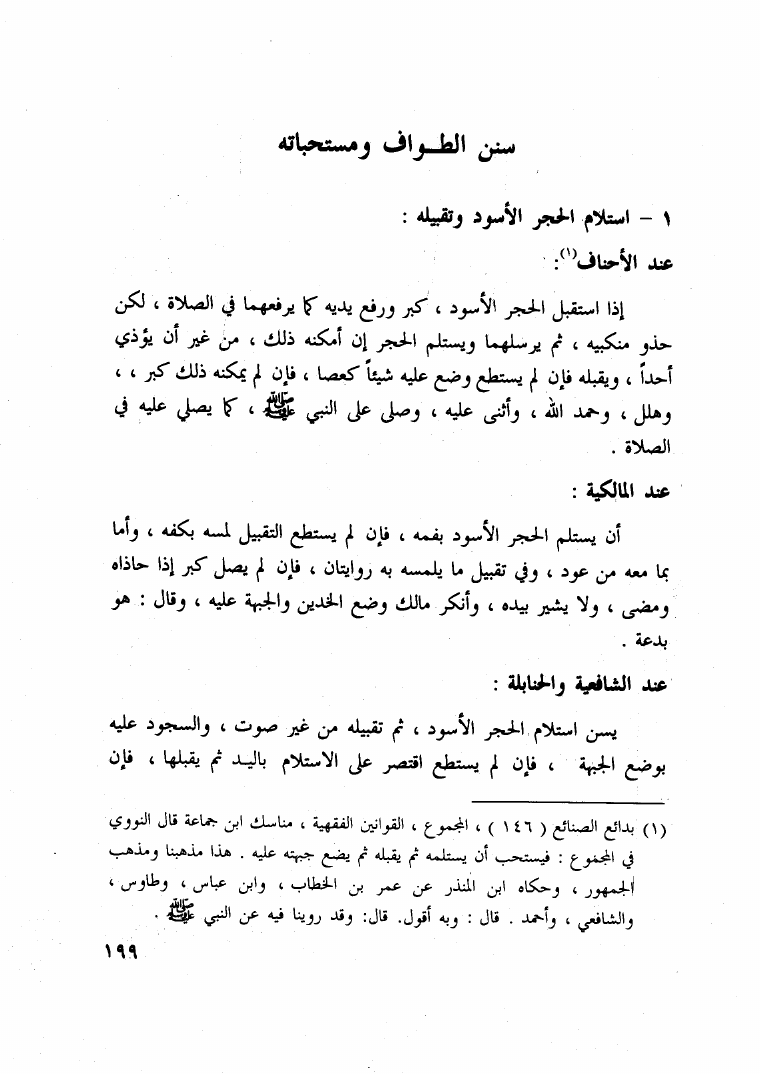 سنن الطــواف ومستحباته
١ – استلام الحجر الأسود وتقبيله :
عند الأحناف(١):
إذا استقبل الحجر الأسود ، كبر ورفع يديه كما يرفعهما في الصلاة ، لكن
حذو منكبيه ، ثم يرسلهما ويستلم الحجر إن أمكنه ذلك ، من غير أن يؤذي
أحداً ، ويقبله فإن لم يستطع وضع عليه شيئاً كعصا ، فإن لم يمكنه ذلك كبر ، ،
وهلل ، وحمد الله ، وأثنى عليه ، وصلى على النبي ﷺ ، كما يصلي عليه في
الصلاة .
عند المالكية :
أن يستلم الحجر الأسود بفمه ، فإن لم يستطع التقبيل لمسه بكفه ، وأما
بما معه من عود ، وفي تقبيل ما يلمسه به روايتان ، فإن لم يصل كبر إذا حاذاه
ومضى ، ولا يشير بيده ، وأنكر مالك وضع الخدين والجبهة عليه ، وقال : هو
بدعة .
عند الشافعية والحنابلة :
يسن استلام الحجر الأسود ، ثم تقبيله من غير صوت ، والسجود عليه
بوضع الجبهة ، فإن لم يستطع اقتصر على الاستلام باليـد ثم يقبلها ، فإن
(١) بدائع الصنائع ( ١٤٦ ) ، المجموع ، القوانين الفقهية ، مناسك ابن جماعة قال النووي
في المجموع : فيستحب أن يستلمه ثم يقبله ثم يضع جبهته عليه . هذا مذهبنا ومذهب
الجمهور ، وحكاه ابن المنذر عن عمر بن الخطاب ، وابن عباس ، وطاوس ،
والشافعي ، وأحمد . قال : وبه أقول. قال: وقد روينا فيه عن النبي ﷺ .
١٩٩